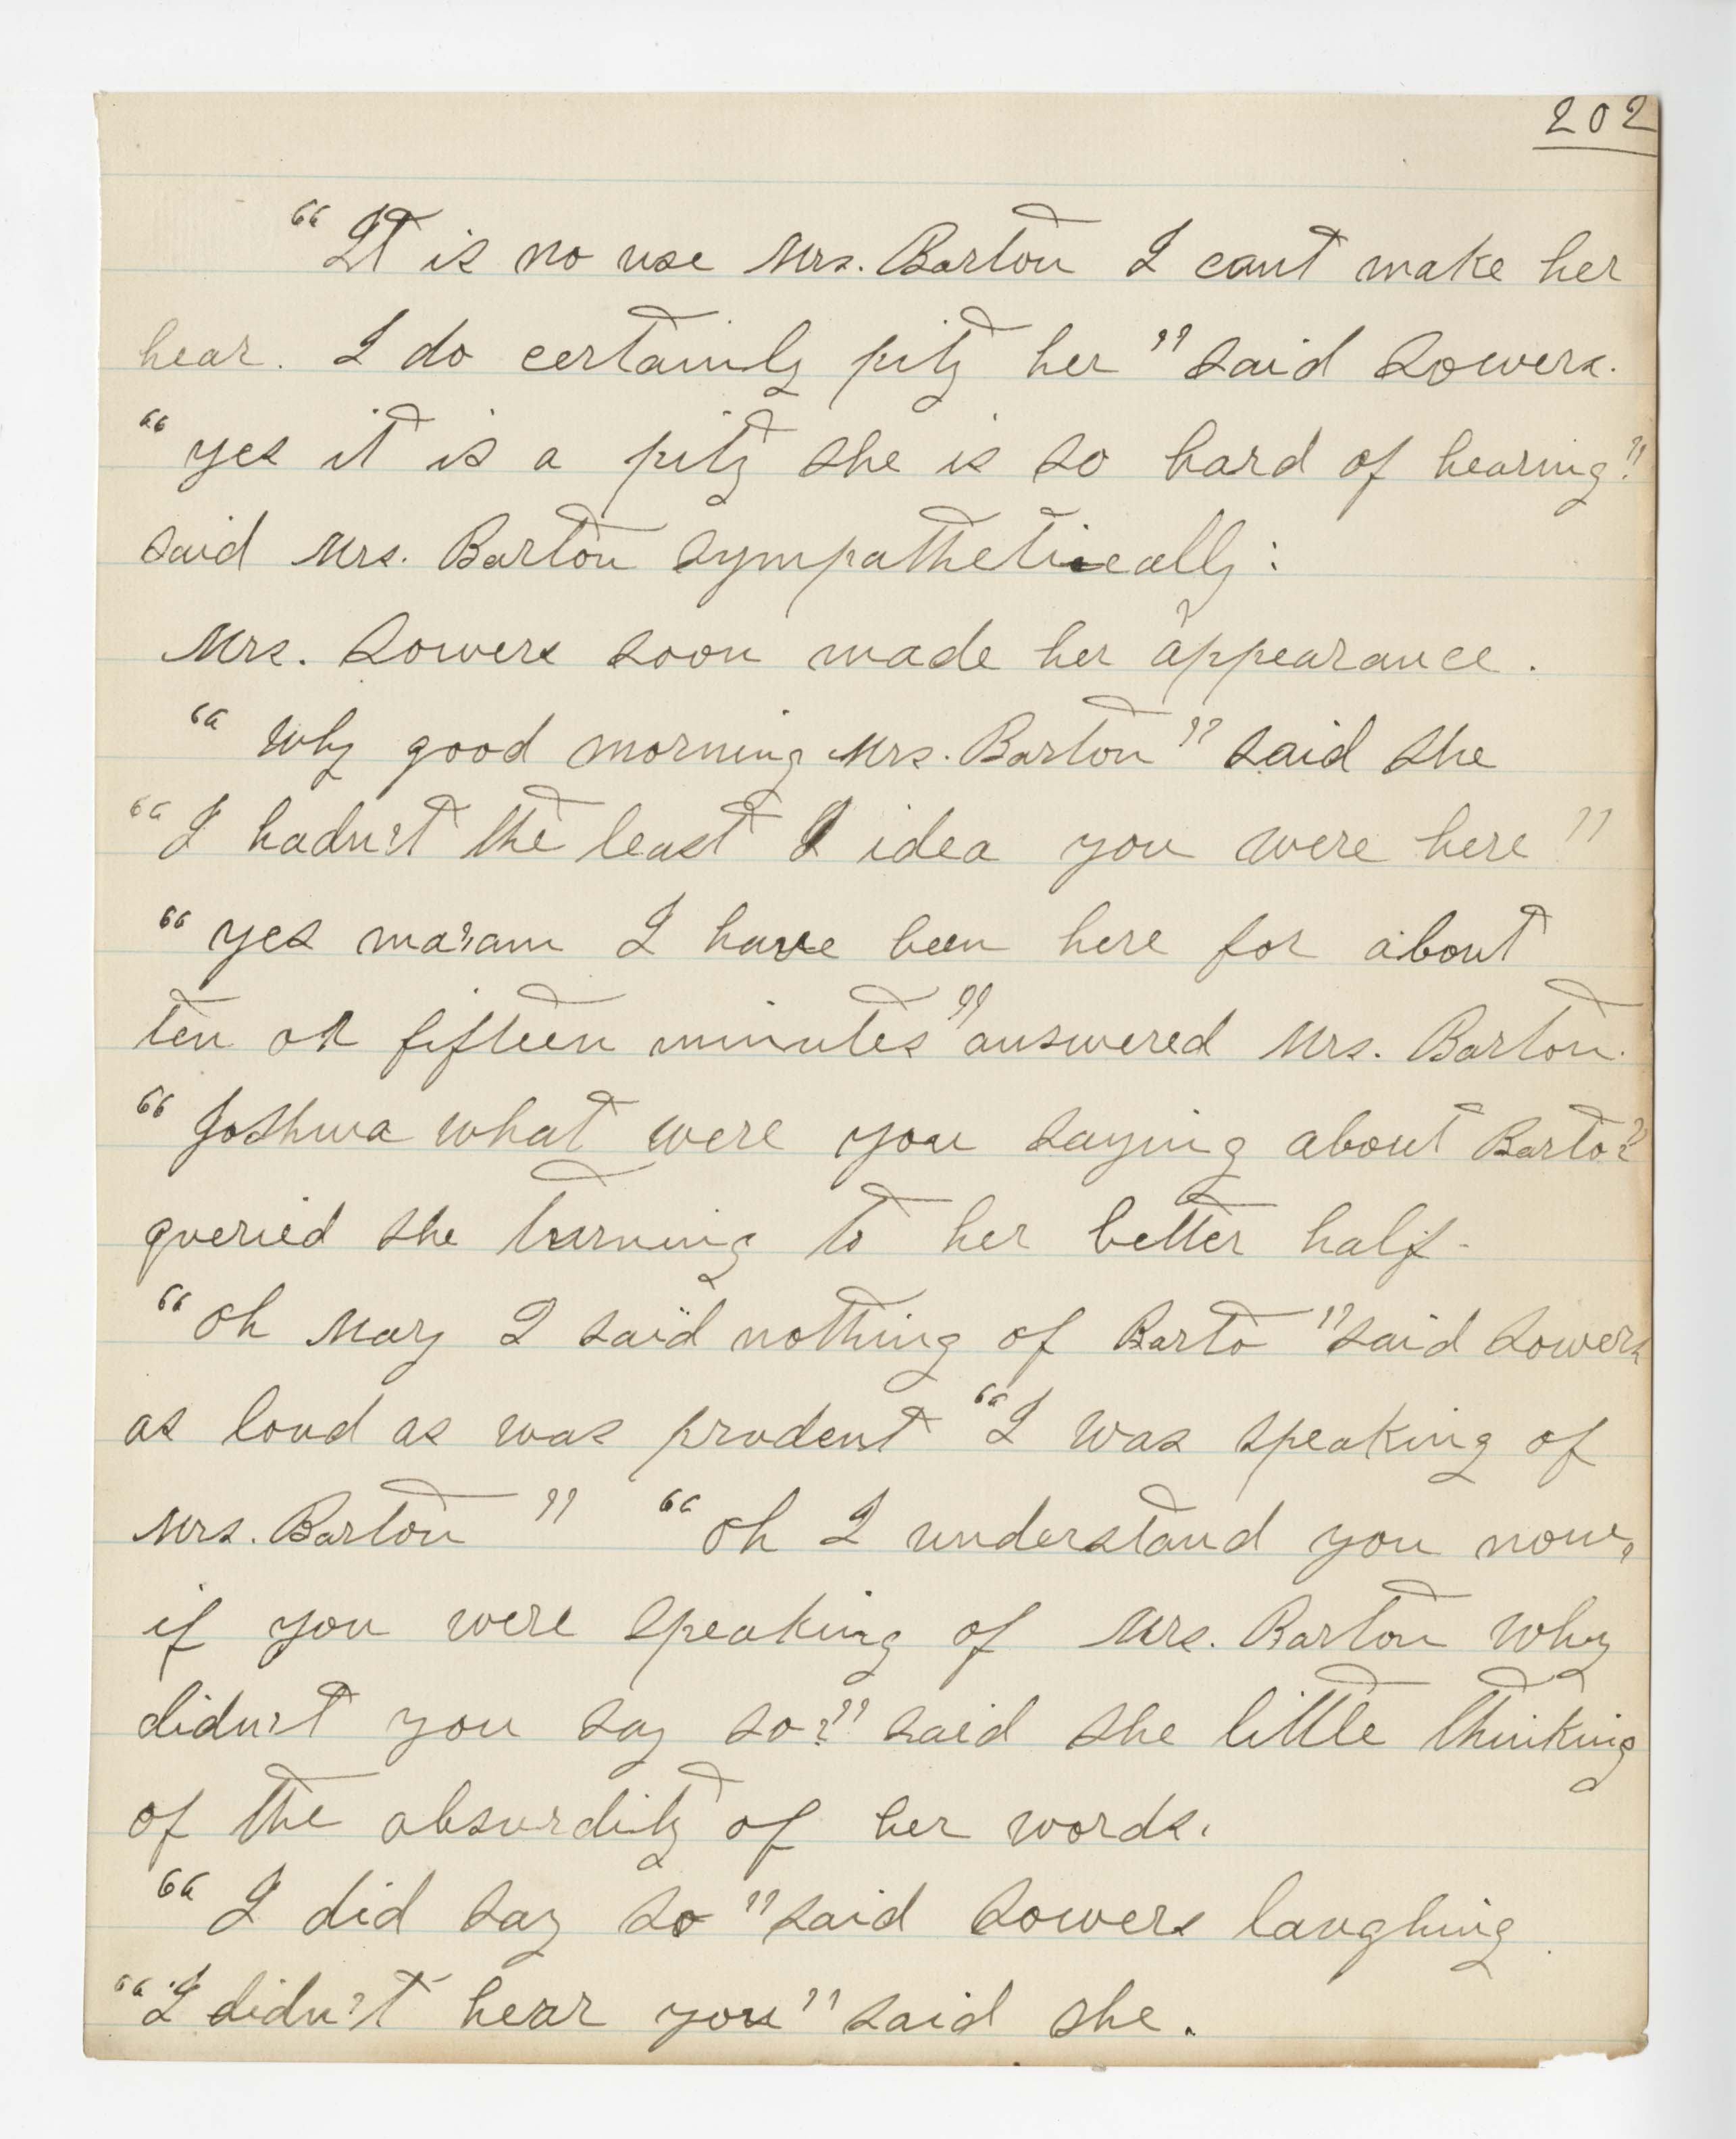 202
"It is no use Mrs. Barton I cant make her
hear. I do certainly pity her" said Sowers.
"yes it is a pity she is so hard of hearing."
said Mrs. Barton sympathetically:
Mrs. Sowers soon made her appearance.
"Why good morning Mrs. Barton" said she
"I hadn't the least I idea you were here"
"yes ma'am I have been here for about
ten or fifteen minutes" answered Mrs. Barton.
"Joshua what were you saying about Barto?"
queried she turning to her better half-
"Oh Mary I said nothing of Barto" said Sowers
as loud as was prudent "I was speaking of
Mrs. Barton" "Oh I understand you now,
if you were speaking of Mrs. Barton why
didn't you say so?" said she little thinking
of the absurdity of her words.
"I did say so" said Sowers laughing.
"I didn't hear you" said she.